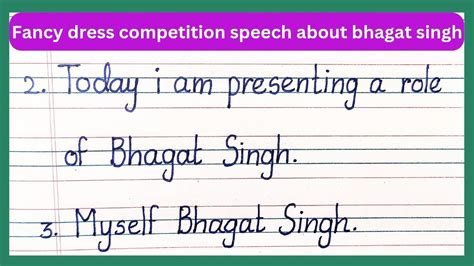 Fancy dress competition speech about bhagat singh
2. Today i am presenting a role
of Bhagat Singh.
3. Myself Bhagat Singh.